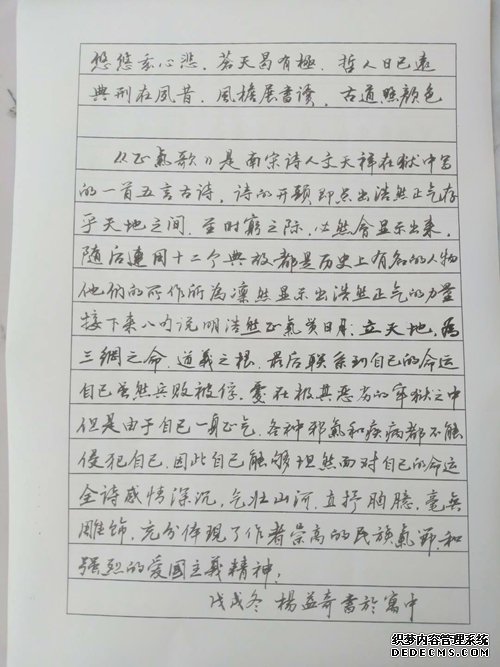 悠悠我心悲，蒼天曷有極．哲人日已遠
典刑在夙昔．風檐展書讀，古道照顏色
《正氣歌》是南宋诗人文天祥在狱中写
的一首五言古诗，诗的开头即点出浩然正气存
乎天地之间，至时窮之际，必然會显示出来，
随后連用十二个典故都是历史上有名的人物
他们的所作所為凛然显示出浩然正气的力量
接下来八句说明浩然正氣貫日月，立天地，為
三綱之命，道義之根．最后联系到自己的命运
自己虽然兵败被俘，處在极其恶劣的牢狱之中
但是由于自己一身正气．各种邪氣和疾病都不能
侵犯自己．因此自己能够坦然面对自己的命运
全诗感情深沉，气壮山河．直抒胸臆，毫無
雕饰，充分体現了作者崇高的民族氣節和
强烈的爱國主義精神．
戊戌冬 楊益奇書於寓中
织梦内容管理系统
DEDECMS.COM